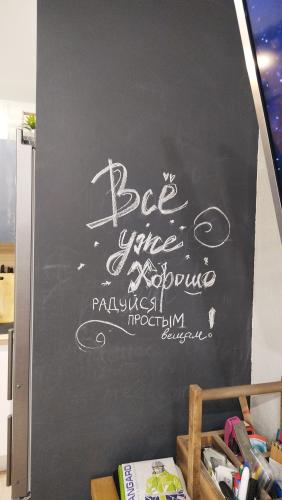 Всё
уже
Хорошо
РАДУЙСЯ
ПРОСТЫМ
вещам!
ANGARD